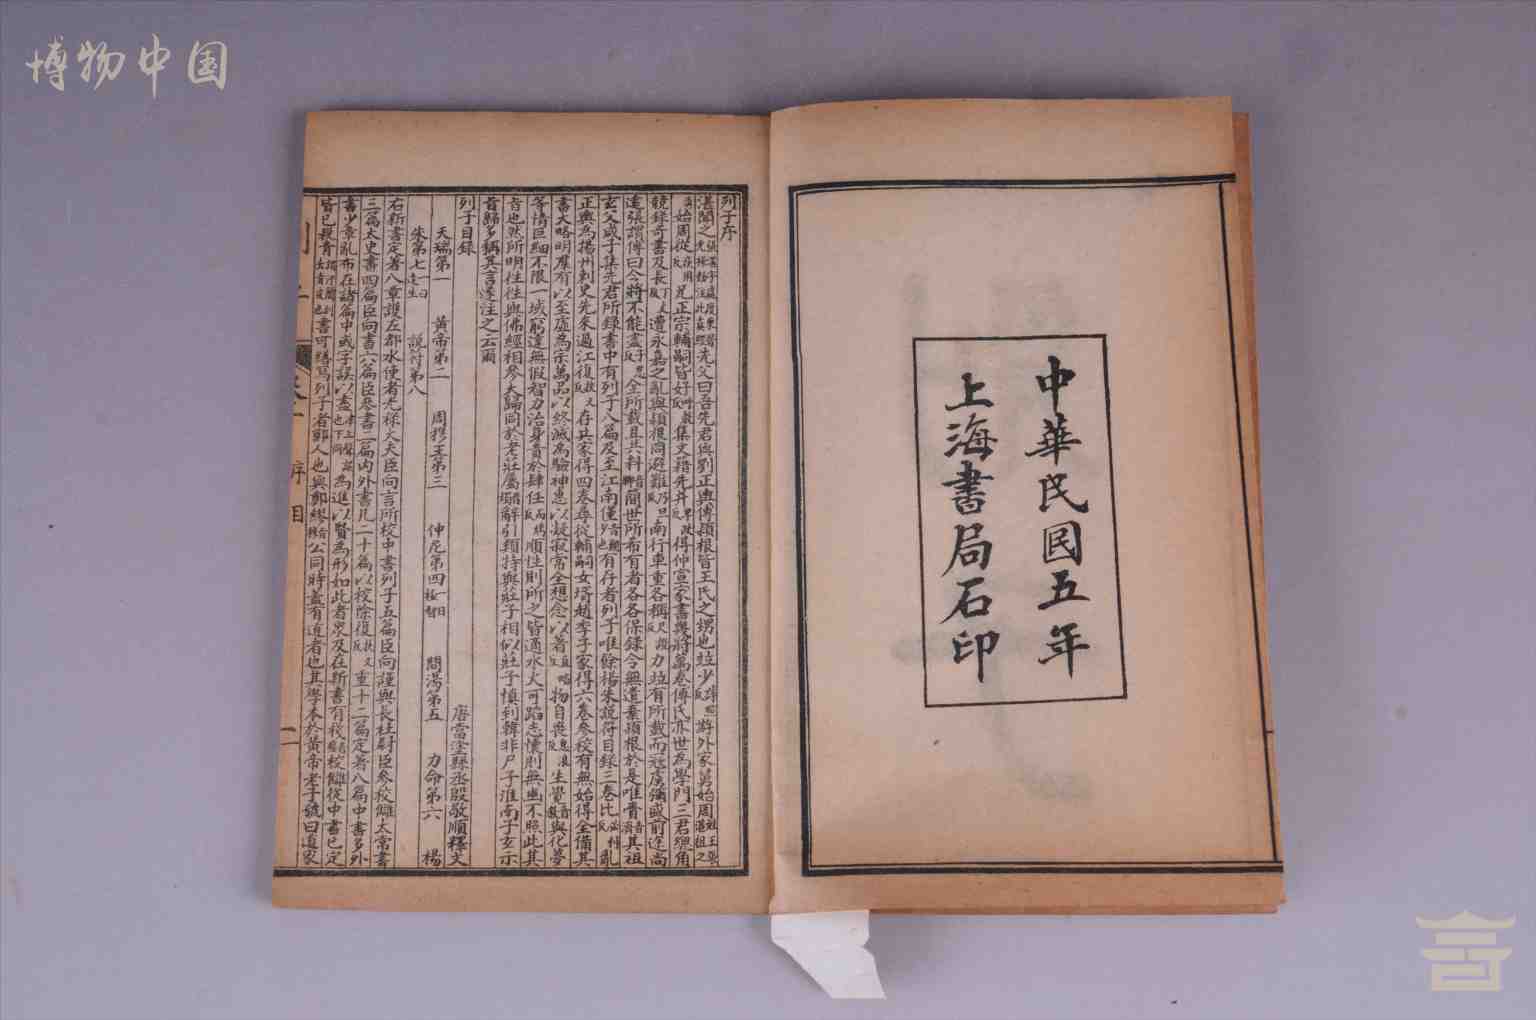 博物中国
中華民國五年
上海書局石印
列子序
湛聞之張湛字處度東晉光祿勳注此真經先父曰吾先君與劉正輿傅穎根皆王氏之甥也竝少游外家舅始周
始周從兄正宗輔嗣皆好集文籍先并得仲宣家書幾將萬卷傅氏亦世為學門三君總角
競錄奇書及長遭永嘉之亂與穎根同避難南行車重各稱力竝有所載而寇虜彌盛前途尚
遠張謂傅曰今將不能盡全所載且共料簡世所希有者各各保錄令無遺棄穎根於是唯齎其祖
玄父咸子集先君所錄書中有列子八篇及至江南僅有存者列子唯餘楊朱說符目錄三卷比亂
正輿為揚州刺史先來過江復在其家得四卷尋從輔嗣女壻趙季子家得六卷參校有無始得全備其
書大略明羣有以至虛為宗萬品以終滅為驗神惠以凝寂常全想念以著物自喪生覺與化夢
等情巨細不限一域窮達無假智力治身貴於肆任順性則所之皆適水火可蹈忘懷則無幽不照此其
旨也然所明往往與佛經相參大歸同於老莊屬辭引類特與莊子相似莊子慎到韓非尸子淮南子玄示
旨歸多稱其言遂注之云爾
列子目錄 唐當塗縣丞殷敬順釋文
天瑞第一 黃帝第二 周穆王第三 仲尼第四一曰極智 問湯第五 力命第六 楊
朱第七一曰達生 說符第八
右新書定著八章護左都水使者光祿大夫臣向言所校中書列子五篇臣向謹與長社尉臣參校讎太常書
三篇太史書四篇臣向書六篇臣參書二篇內外書凡二十篇以校除復重十二篇定著八篇中書多外
書少章亂布在諸篇中或字誤以盡為進以賢為形如此者眾及在新書有棧校讎從中書已定
皆已殺青書可繕寫列子者鄭人也與鄭繆公同時蓋有道者也其學本於黃帝老子號曰道家
序目